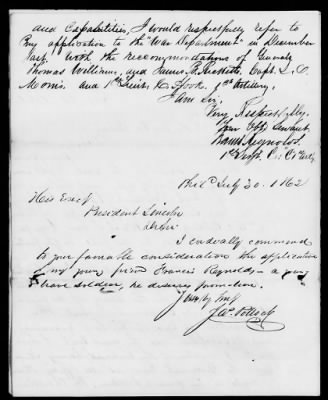 and Capabilities, I would respectfully refer to
my application to the "War Department" in December
last. With the recommendations of Generals
Thomas Williams, and James B. Ricketts, Capt. L. O.
Morris. and 1st Lieut. 1st Artillery.
I am Sir,
Very Respectfully,
Your Obt. Servant
Reynolds,
1st Sergt.
Phila July 30. 1862
His Excy
President Lincoln
Dr Sir
I cordially commend
to your favorable consideration the application
of my young friend Francis Reynolds - a young
& brave soldier, he deserves promotion.
Yours
Jas. Pollock